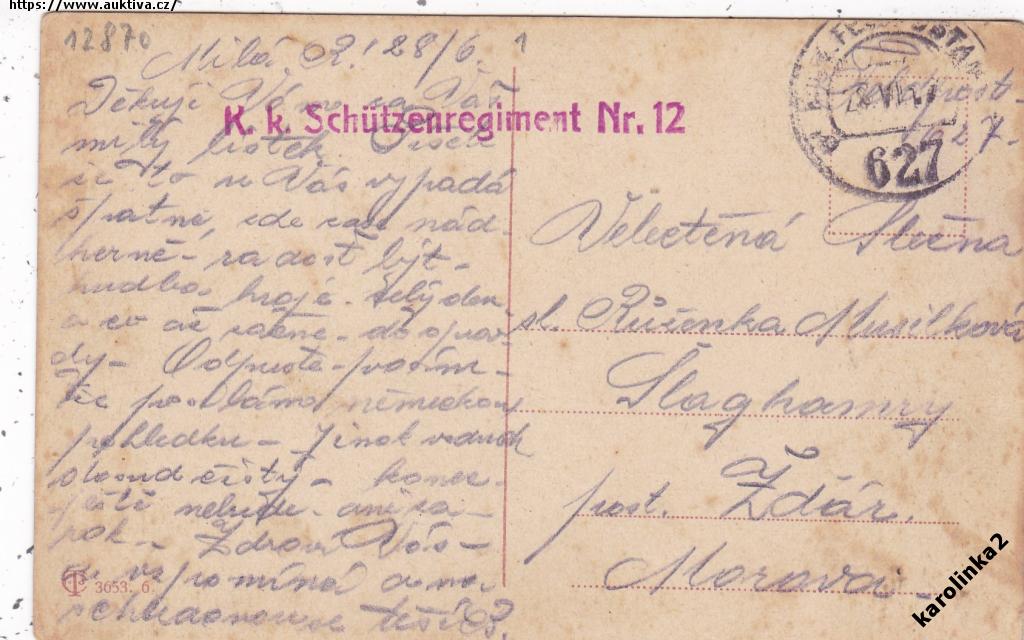 https://www.auktiva.cz/
12870
1
Milá R! 28/6.
Děkuji Vám za Váš
milý lístek. Píšete
že to u Vás vypadá
špatně, zde zase nád-
herně - radost být -
hudba hraje - celý den
a co až začne - do oprav
dy - Odpusťte - prosím -
že posílám německou
pohledku - Jinak vzduch
čistý - konec
ještě nebude - ani zá-
pok - Zdraví Vás -
vzpomíná a na
se těší R.
K. k. Schützenregiment Nr. 12
627
Feldpost
627.
Velectěná Slečna
sl. Růženka Musilková
Šlaghamry
post. Žďár.
Morava -
3653. 6
karolinka2